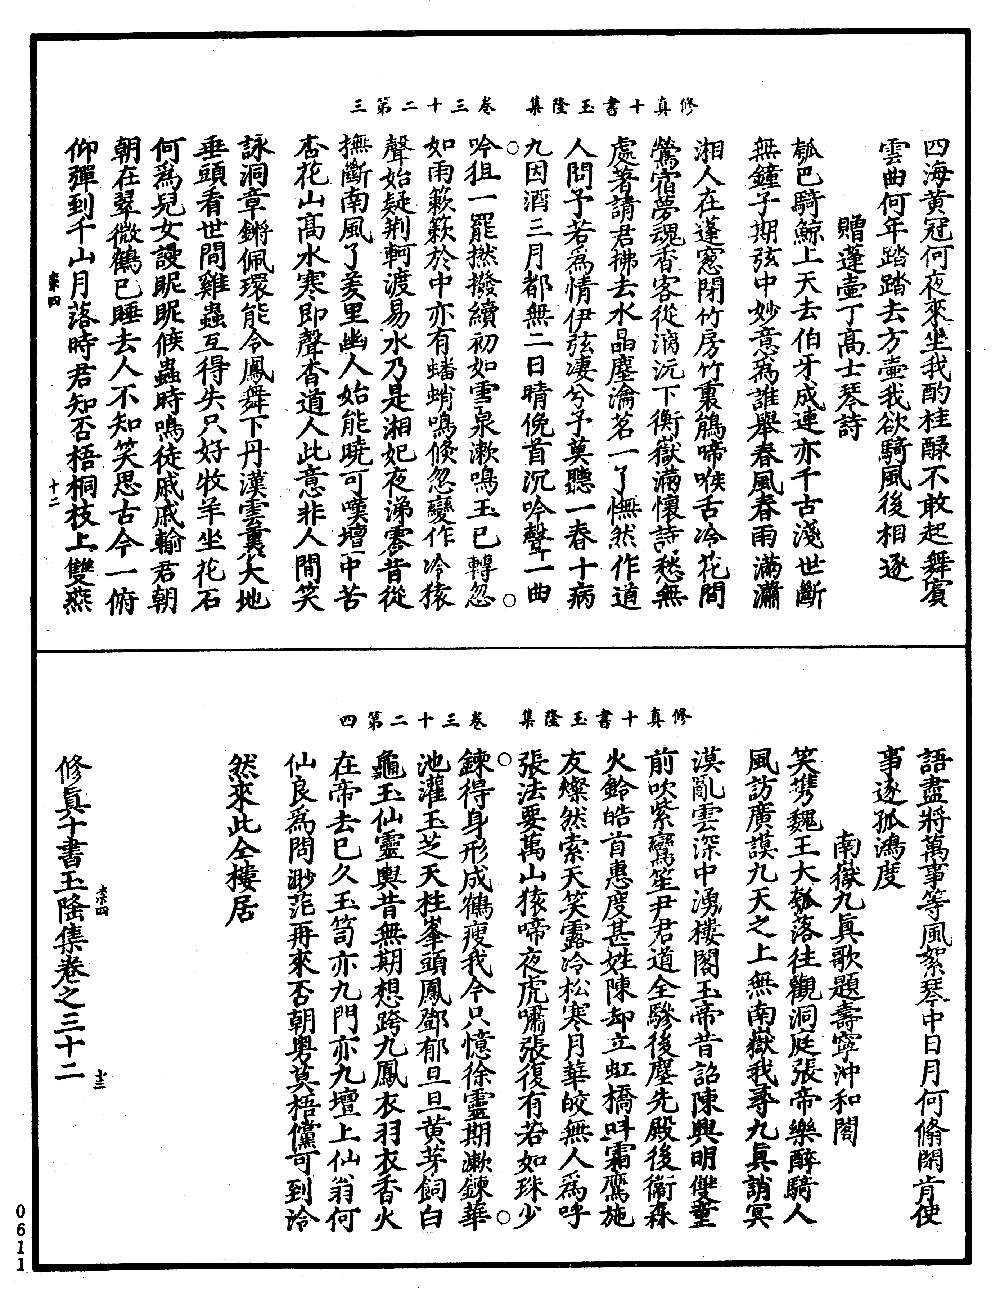 修真十書玉隆集　卷三十二第三
四海黃冠何夜來坐我酌桂醁不敢起舞賓
雲曲何年踏踏去方壺我欲騎風後相逐
贈蓬壺丁高士琴詩
瓠巴騎鯨上天去伯牙成連亦千古淺世斷
無鐘子期弦中妙意為誰舉春風春雨滿瀟
湘人在蓬窓閉竹房竹裏鵑啼喉舌冷花間
鶯宿夢魂香客從漓沅下衡嶽滿懷詩愁無
處著請君拂去水晶塵瀹茗一了憮然作道
人問予若為情伊弦淒兮予莫聽一春十病
九因酒三月都無二日晴俛首沉吟聲一曲
吟狙一罷撚撥續初如雪泉漱鳴玉已轉忽
如雨簌簌於中亦有蟠蛸鳴倏忽變作冷猿
聲始疑荆軻渡易水乃是湘妃夜涕零昔從
撫斷南風了羑里幽人始能曉可嘆壇中苦
杏花山高水寒即聲杳道人此意非人間笑
詠洞章鏘佩環能令鳳舞下丹漢雲裏大地
垂頭看世間雞蟲互得失只好牧羊坐花石
何為兒女謾昵昵候蟲時鳴徒戚戚輸君朝
朝在翠微鶴已睡去人不知笑思古今一俯
仰彈到千山月落時君知否梧桐枝上雙燕
柰四　十二
修真十書玉隆集　卷三十二第四
語盡將萬事等風絮琴中日月何脩閑肯使
事逐孤鴻度
南嶽九真歌題壽寧沖和閣
笑㩦魏王大瓠落往觀洞庭張帝樂醉騎人
風訪廣謨九天之上無南嶽我尋九真誚冥
漠亂雲深中湧樓閣玉帝昔詔陳興明雙童
前吹紫鸞笙尹君道全驂後塵先殿後衞森
火鈴皓首惠度甚姓陳却立虹橋叫霜鷹施
友燦然索天笑露冷松寒月華皎無人為呼
張法要萬山猿啼夜虎嘯張復有若如珠少
鍊得身形成鶴瘦我今只憶徐靈期漱鍊華
池灌玉芝天柱峯頭鳳鄧郁旦旦黃芽飼白
龜玉仙靈輿昔無期想跨九鳳衣羽衣香火
在帝去已久玉笥亦九門亦九壇上仙翁何
仙良為問渺茫再來否朝粵莫梧儻可到泠
然來此全樓居
修真十書玉隆集卷之三十二
柰四　十三
0611